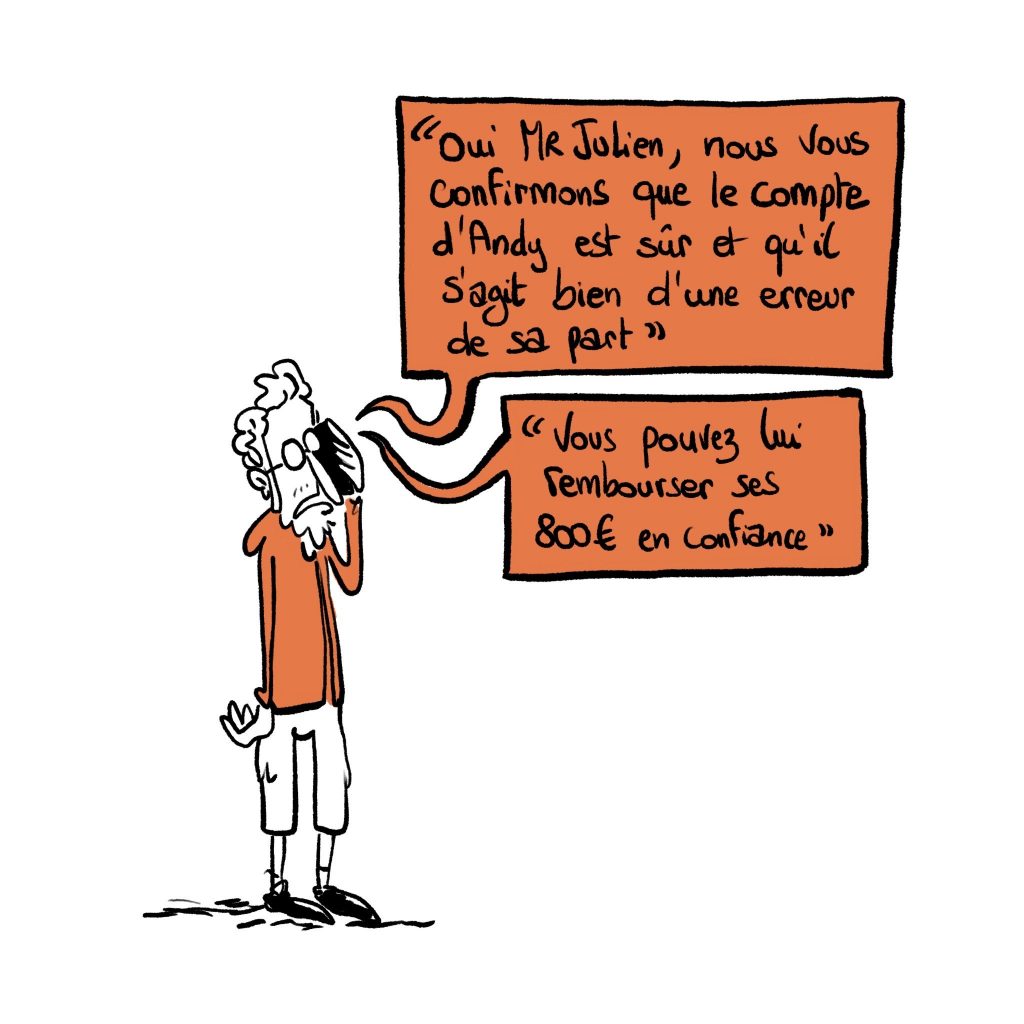 “Oui Mr Julien, nous vous
confirmons que le compte
d'Andy est sûr et qu'il
s'agit bien d'une erreur
de sa part”
“Vous pouvez lui
rembourser ses
800€ en confiance”